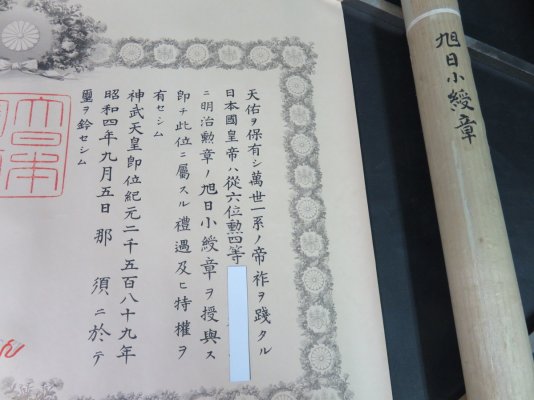 天佑ヲ保有シ萬世一系ノ帝祚ヲ踐タル
日本國皇帝ハ從六位勲四等
ニ明治勲章ノ旭日小綬章ヲ授與ス
即チ此位ニ屬スル禮遇及ヒ特權ヲ
有セシム
神武天皇即位紀元二千五百八十九年
昭和四年九月五日那須ニ於テ
璽ヲ鈐セシム
大日本
旭日小綬章